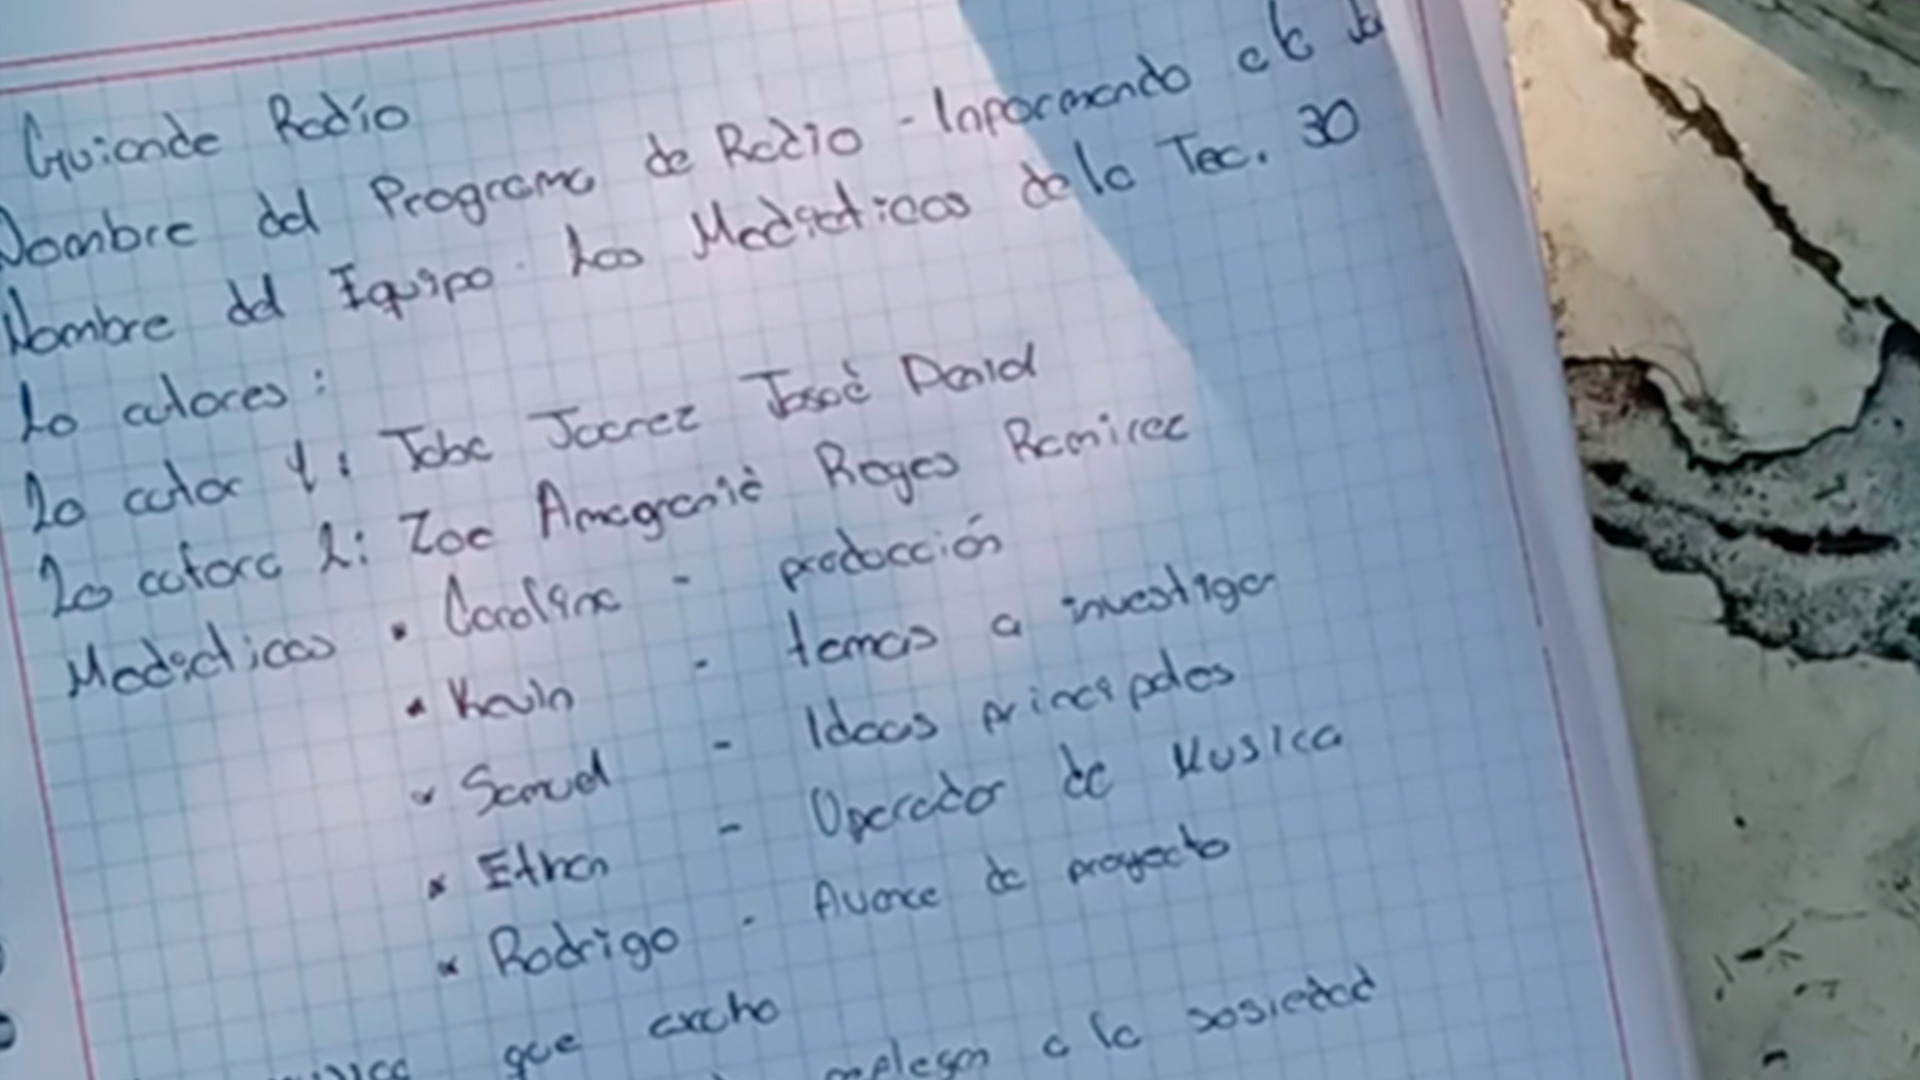 Guionde Radio
Nombre del Programa de Radio - Informando a la
Nombre del Equipo - Los Mediaticos de la Tec. 30
Lo cutores:
Lo cutor 1: Juarez José David
Lo cutora 2: Zoe Reyes Ramirez
Mediaticos • Carolina - producción
• Kevin - temas a investigar
• Samuel - Ideas principales
• Ethan - Operador de Musica
• Rodrigo - Avance de proyecto
que
a la sosiedad